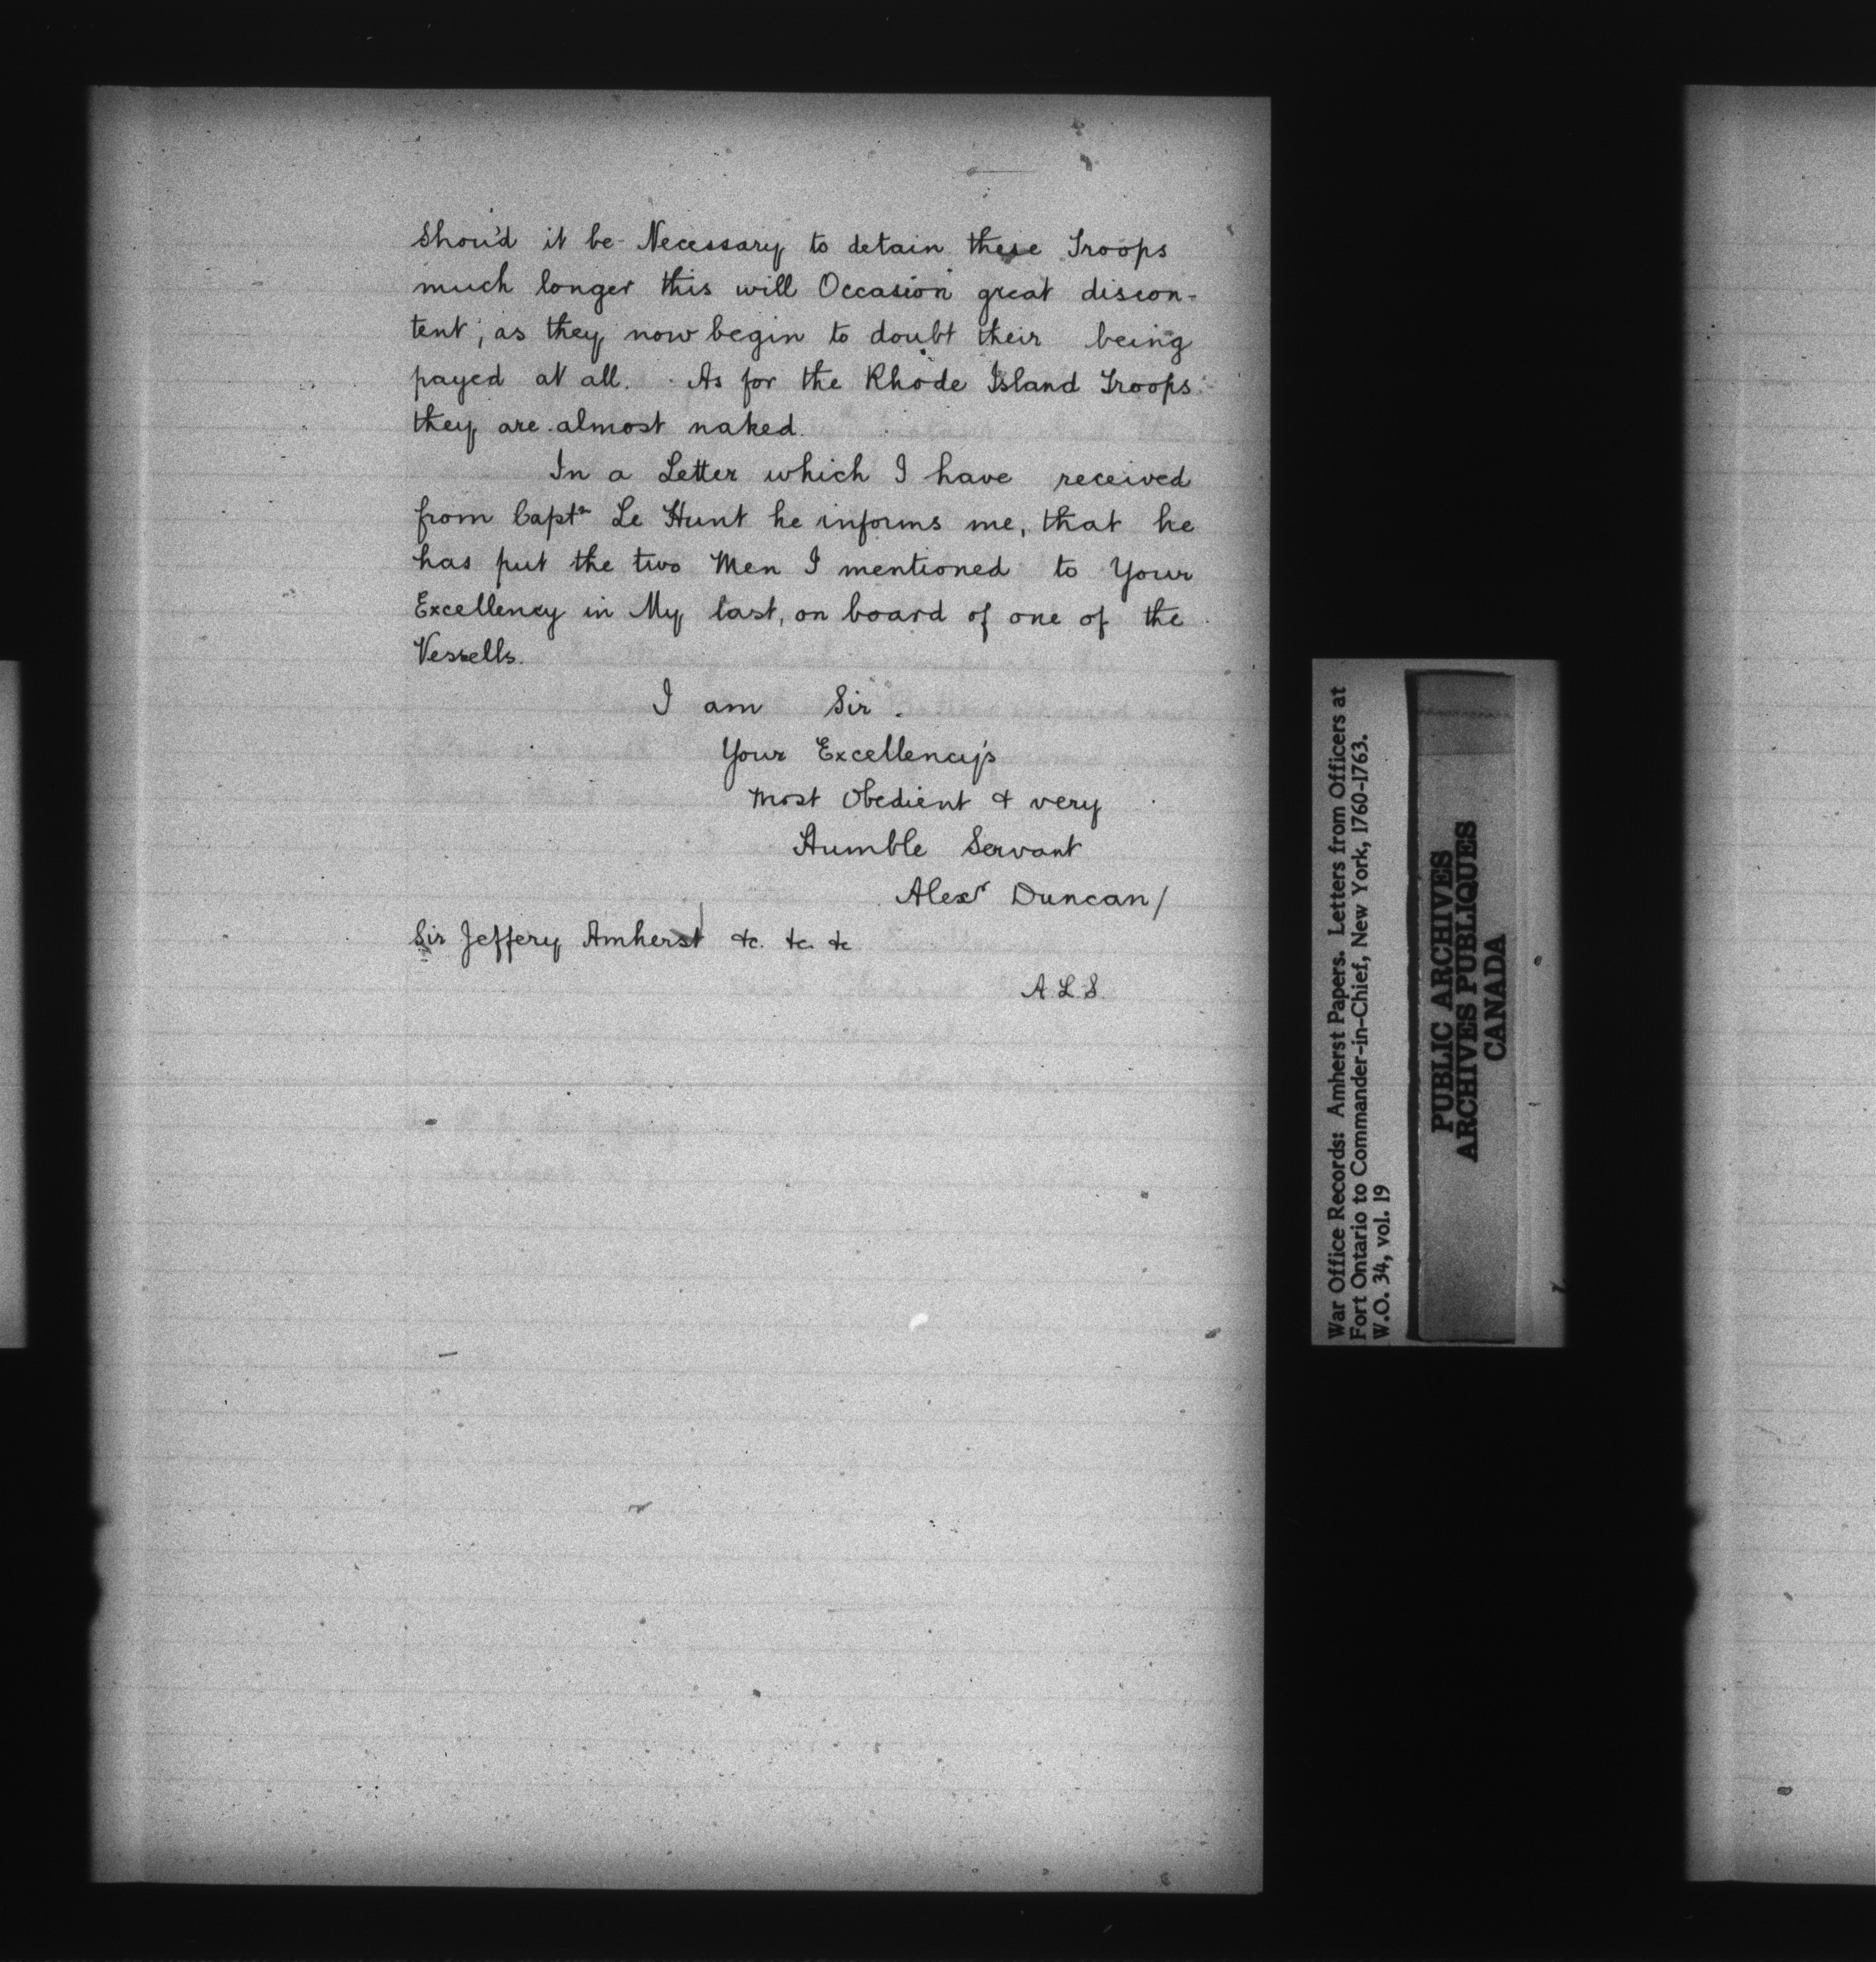 Shou'd it be Necessary to detain these Troops
much longer this will Occasion great discon-
tent; as they now begin to doubt their being
payed at all. As for the Rhode Island Troops
they are almost naked.
In a Letter which I have received
from Captn Le Hunt he informs me, that he
has put the two Men I mentioned to Your
Excellency in My last, on board of one of the
Vessells.
I am Sir.
Your Excellency's
Most Obedient & very
Humble Servant
Alexr Duncan/
Sir Jeffery Amherst &c. &c. &c
A L S.
War Office Records: Amherst Papers. Letters from Officers at
Fort Ontario to Commander-in-Chief, New York, 1760-1763.
W.O. 34, vol. 19
PUBLIC ARCHIVES
ARCHIVES PUBLIQUES
CANADA